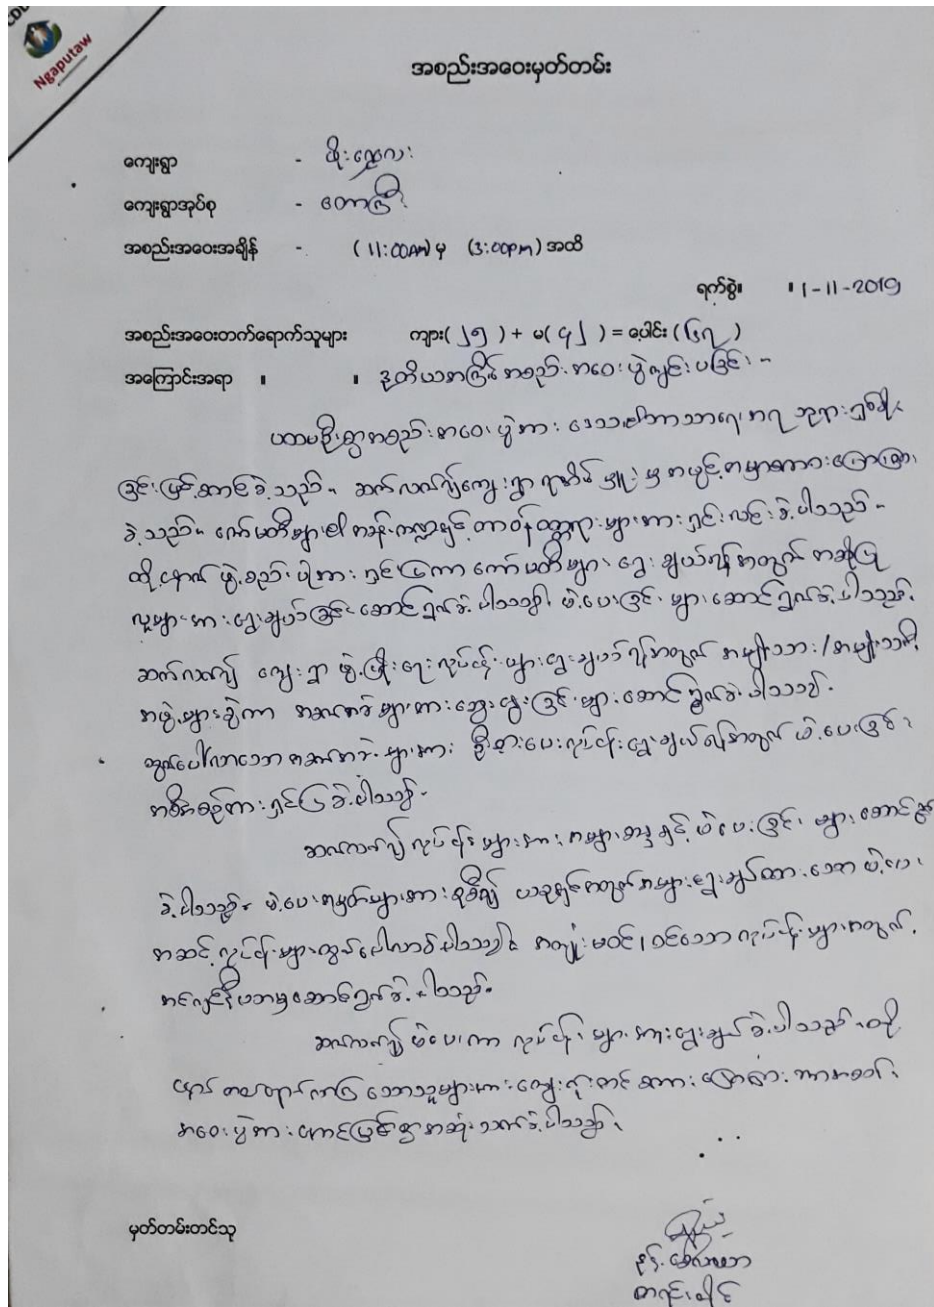 Ngaputaw
အစည်းအဝေးမှတ်တမ်း
ကျေးရွာ - ဖိုးသျှောလး
ကျေးရွာအုပ်စု - တောကြီး
အစည်းအဝေးအချိန် - (11:00AM) မှ (3:00pm) အထိ
ရက်စွဲ။ ။ 1-11-2019
အစည်းအဝေးတက်ရောက်သူများ ကျား(၂၅) + မ(၄၂) = ပေါင်း(၆၇)
အကြောင်းအရာ ။ ။ ဒုတိယအကြိမ်အစည်းအဝေးပွဲကျင်းပခြင်း။
ပထမဦးစွာအစည်းအဝေးပွဲအား ဘုရားရှစ်ခိုး
ခြင်းဖြင့် ခဲ့သည်။ ဆက်လက်၍ကျေးရွာ မှ အဖွင့်အမှာစကားပြောကြား
ခဲ့သည်။ ကော်မတီများ၏အခန်းကဏ္ဍနှင့်တာဝန်ဝတ္တရားများအားရှင်းလင်းခဲ့ပါသည်။
ထို့နောက်ဖွဲ့စည်းပုံအားရှင်ပြကာကော်မတီများရွေးချယ်ရန်အတွက်အဆိုပြု
လူများအားရွေးချယ်ခြင်းဆောင်ရွက်ခဲ့ပါသည်။ မဲပေးခြင်းများဆောင်ရွက်ခဲ့ပါသည်။
ဆက်လက်၍ ကျေးရွာဖွံ့ဖြိုးရေးလုပ်ငန်းများရွေးချယ်ရန်အတွက် အမျိုးသား/အမျိုးသမီး
အဖွဲ့များခွဲကာ အခက်အခဲများအားဆွေးနွေးခြင်းများဆောင်ရွက်ခဲ့ပါသည်။
ထွက်ပေါ်လာသောအခက်အခဲများအား ဦးစားပေးလုပ်ငန်းရွေးချယ်ရန်အတွက်မဲပေးခြင်း
အစီအစဉ်အားရှင်းပြခဲ့ပါသည်။
ဆက်လက်၍လုပ်ငန်းများအား မဲပေးခြင်းများဆောင်ရွက်
ခဲ့ပါသည်။ မဲပေးအမှတ်များအား အများရွေးချယ်ထားသော
လုပ်ငန်းများထွက်ပေါ်လာခဲ့ပါသည်။ အကျုံးမဝင်/ဝင်သောလုပ်ငန်းများအတွက်
ဆောင်ရွက်ခဲ့ပါသည်။
ဆက်လက်၍မဲပေးကာ လုပ်ငန်းများအားရွေးချယ်ခဲ့ပါသည်။ ထို့
နောက် သောသူများအားကျေးဇူးတင်စကားပြောကြားကာအစည်း
အဝေးပွဲအားအောင်မြင်စွာအဆုံးသတ်ခဲ့ပါသည်။
မှတ်တမ်းတင်သူ